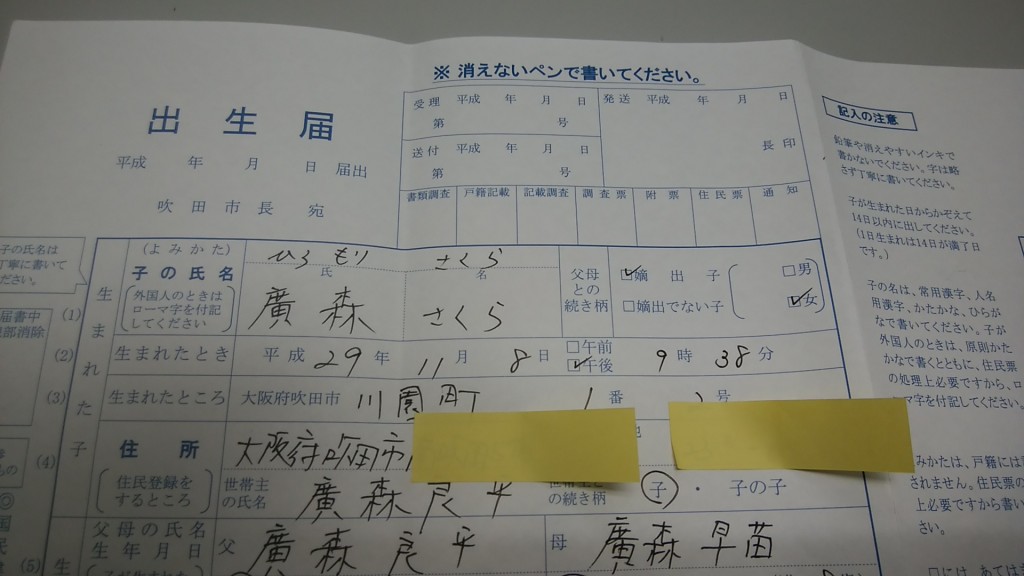 ※ 消えないペンで書いてください。
出生届
平成 年 月 日 届出
吹田市長 宛
受理 平成 年 月 日
第 号
発送 平成 年 月 日
送付 平成 年 月 日
第 号
長印
書類調査 戸籍記載 記載調査 調査票 附票 住民票 通知
記入の注意
鉛筆や消えやすいインキで
書かないでください。字は略
さず丁寧に書いてください。
子が生まれた日からかぞえて
14日以内に出してください。
(1日生まれは14日が満了日
です。)
子の名は、常用漢字、人名
用漢字、かたかな、ひらが
なで書いてください。子が
外国人のときは、原則かた
かなで書くとともに、住民票
の処理上必要ですから、ロ
ーマ字を付記してください。
みかたは、戸籍には
されません。住民票の
上必要ですから書い
さい。
□には、あては
子の氏名は
丁寧に書いて
ださい。
届書中
部消除
生まれた子
(1)
(よみかた) ひろ もり さくら
子の氏名 氏 名
外国人のときは
ローマ字を付記
してください
廣森 さくら
父母
との
続き柄
☑嫡出子
□嫡出でない子
□男
☑女
(2) 生まれたとき 平成 29 年 11 月 8 日 □午前 ☑午後 9 時 38 分
(3) 生まれたところ 大阪府吹田市 川園町 1 番 号
(4) 住所
住民登録を
するところ
大阪府吹田市
世帯主
の氏名
廣森良平
の続き柄
子・子の子
(5)
父母の氏名
生年月日
父 廣森良平
母 廣森早苗